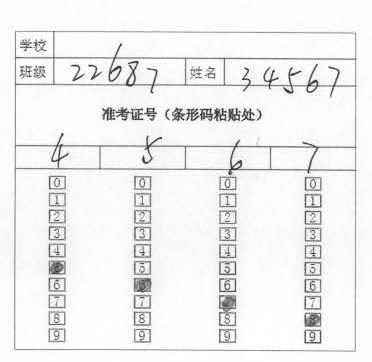 学校
班级 22687 姓名 34567
准考证号（条形码粘贴处）
4 5 6 7
0 0 0 0
1 1 1 1
2 2 2 2
3 3 3 3
4 4 4 4
5 5 5
6 6 6
7 7 7
8 8 8
9 9 9 9